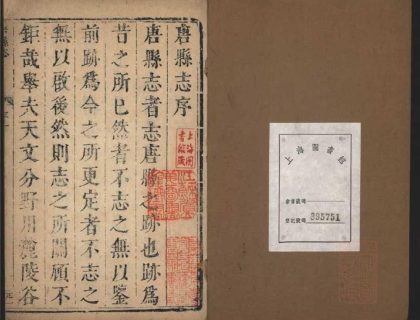 唐縣志序
唐縣志者志唐縣之跡也跡爲
昔之所已然者不志之無以鑒
前跡爲今之所更定者不志之
無以啟後然則志之所關顧不
鉅哉舉夫天文分野用麗陵谷
上海圖書館藏
上海圖書館
登記號碼 395751